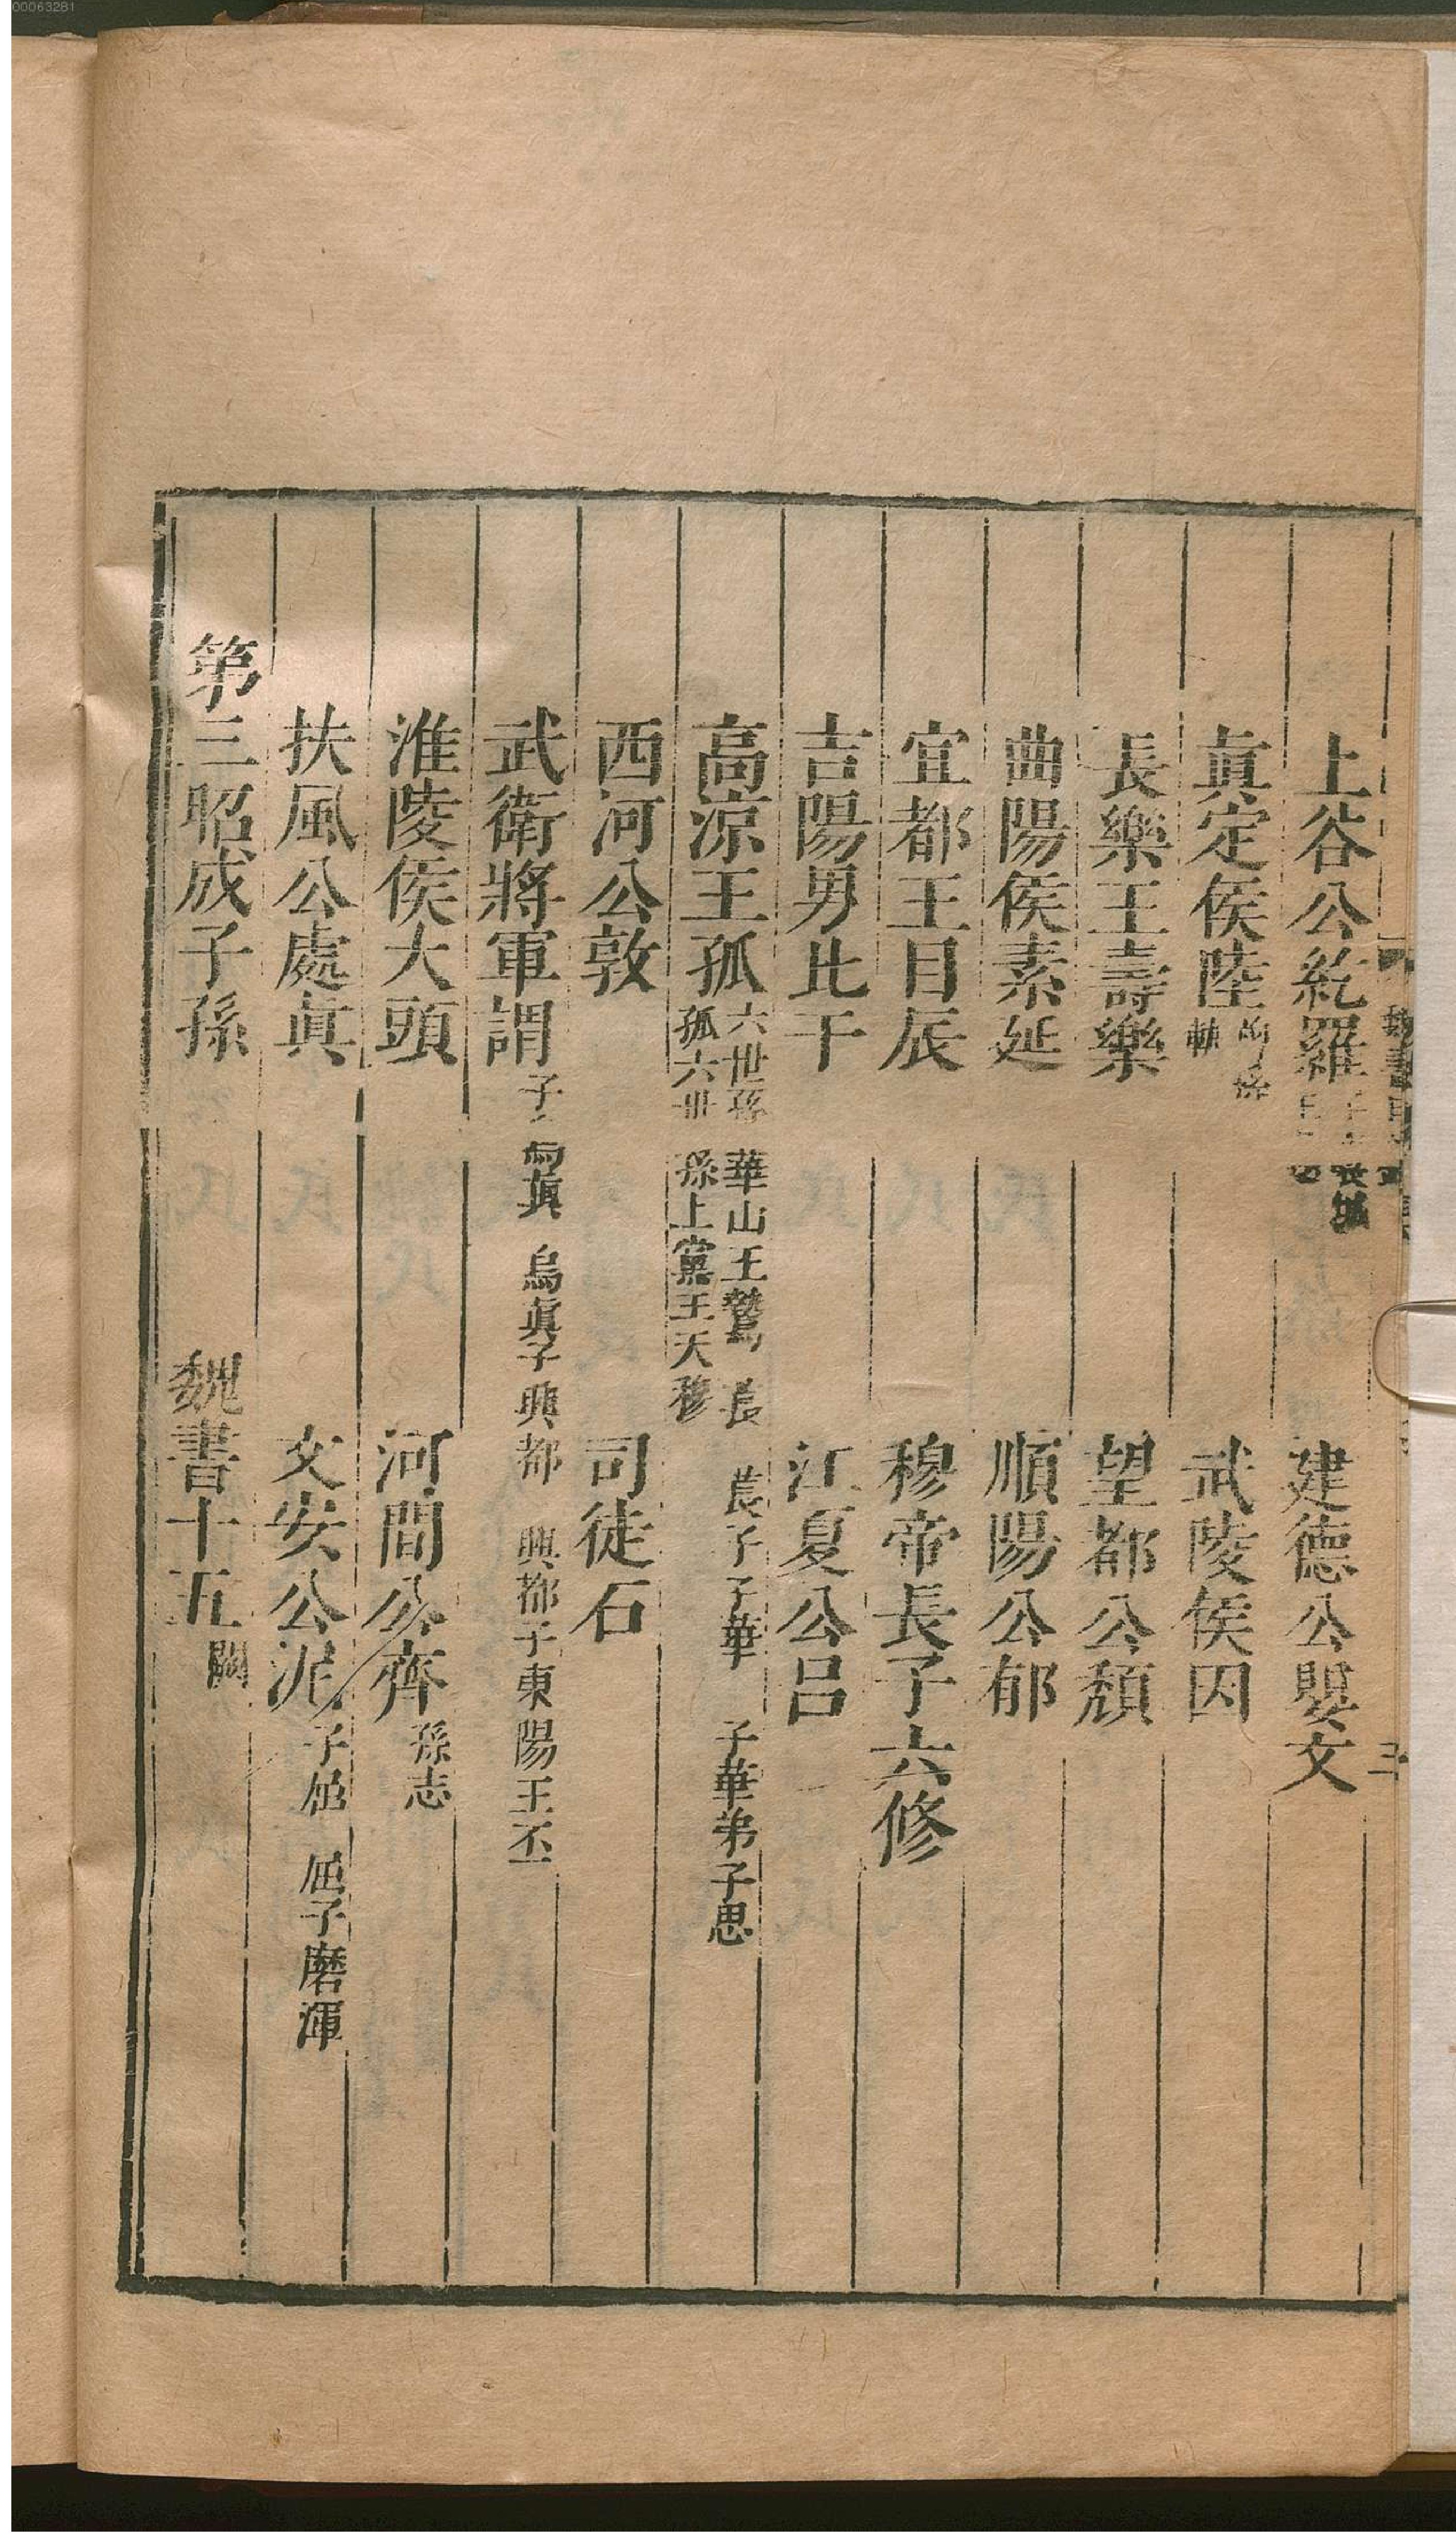 上谷公紇羅 建德公嬰文
眞定侯陸 武陵侯因
長樂王壽樂 望都公頹
曲陽侯素延 順陽公郁
宜都王目辰 穆帝長子六修
吉陽男比干 江夏公呂
高涼王孤 六世孫華山王鷙 萇 萇子子華 子華弟子思
孤六世孫上黨王天穆
西河公敦 司徒石
武衛將軍謂 子烏眞 烏眞子興都 興都子東陽王丕
淮陵侯大頭 河間公齊 孫志
扶風公處眞 文安公泥 子屈 屈子磨渾
第三昭成子孫 魏書十五 闕
00063281